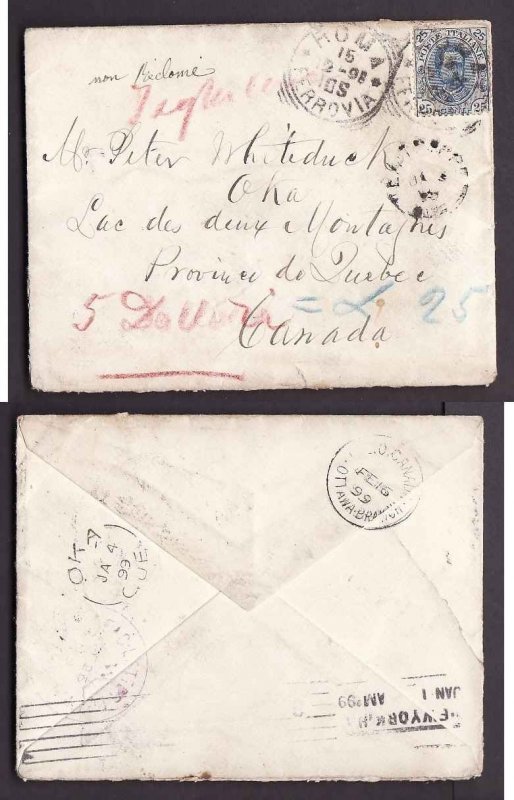 25 POSTE ITALIANE 25
25 25
ROMA
15
12-98
10S
FERROVIA
non Réclamé
Mr Peter Whiteduck
Oka
Lac des deux Montagnes
Province de Quebec
Canada
5 Dollari = L. 25
D.L.O. CANADA
FE 16
99
OTTAWA-BRANCH
OKA
JA 4
99
QUE
NEW YORK, N.Y.
JAN 1
AM '99